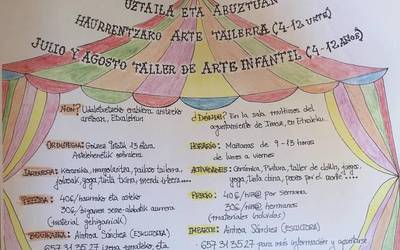 UZTAILA ETA ABUZTUAN
HAURRENTZAKO ARTE TAILERRA (4-12 URTE)
JULIO Y AGOSTO TALLER DE ARTE INFANTIL (4-12 AÑOS)
NON? Udaletxetxeko erabilera anitzeko
aretoan, Etxalekun
ORDUTEGIA: Goizez 9tatik 13 etara
Astelehenetik ostiralera
JARDUERAK: Keramika, margolaritza, tailerra,
jolasak, yoga, tinta txina,
PREZIOA: 40€/haurreko eta asteko
30€/bigarren seme-alabatik aurrera
(materiala gehigarriak)
Ainhoa Sánchez (ESKULTOREA)
657 31 35 27
¿DÓNDE? En la sala multiusos del
ayuntamiento de Imoz, en Etxaleku.
HORARIO: Mañanas de 9-13 horas
de lunes a viernes
ACTIVIDADES: Cerámica, Pintura, taller de clown, juegos,
yoga, tinta china, paseos por el monte...
PRECIO: 40€/niñ@ por semana
30€/niñ@ hermanos
(materiales incluidos)
IMPARTE: Ainhoa Sánchez (ESCULTORA)
657 31 35 27 para más información y apuntarse